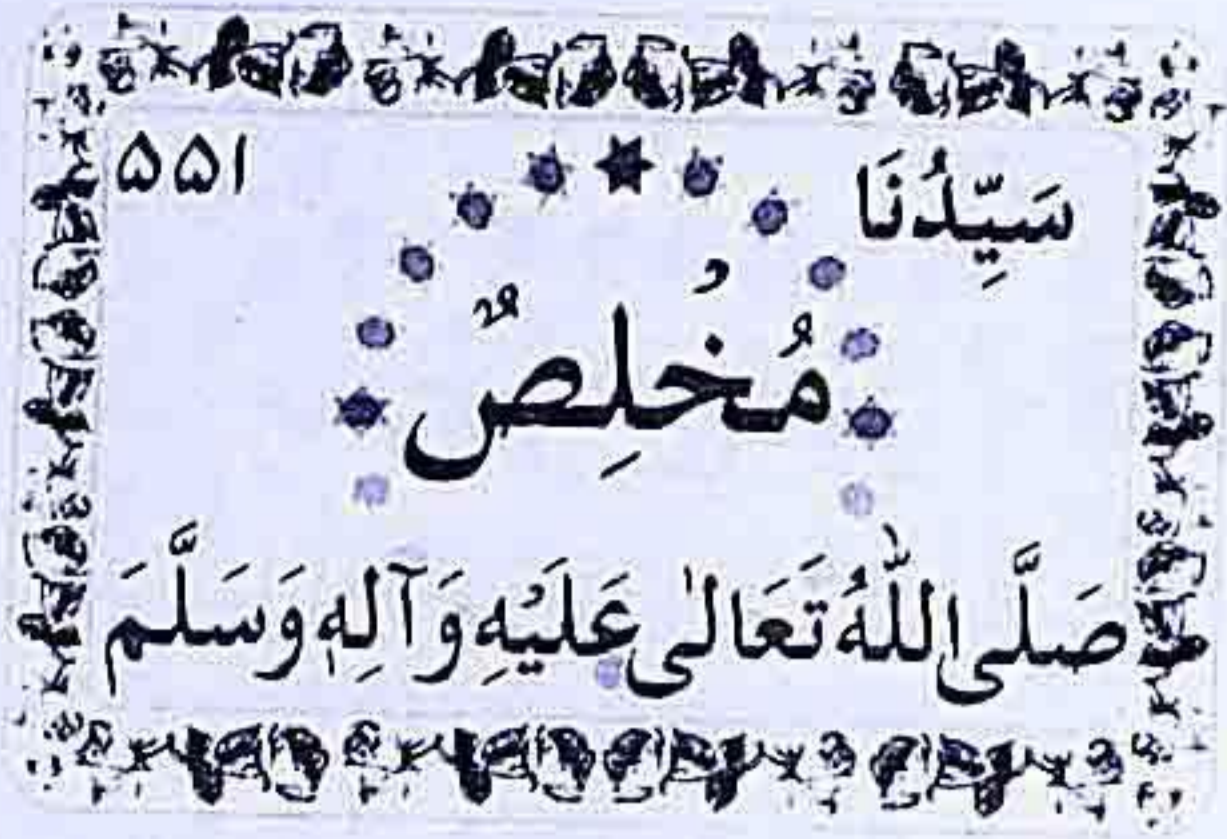 سَيِّدُنَا
۵۵۱
مُخْلِصٌ
صَلَّى اللّٰهُ تَعَالٰى عَلَيْهِ وَآلِهٖ وَسَلَّمَ